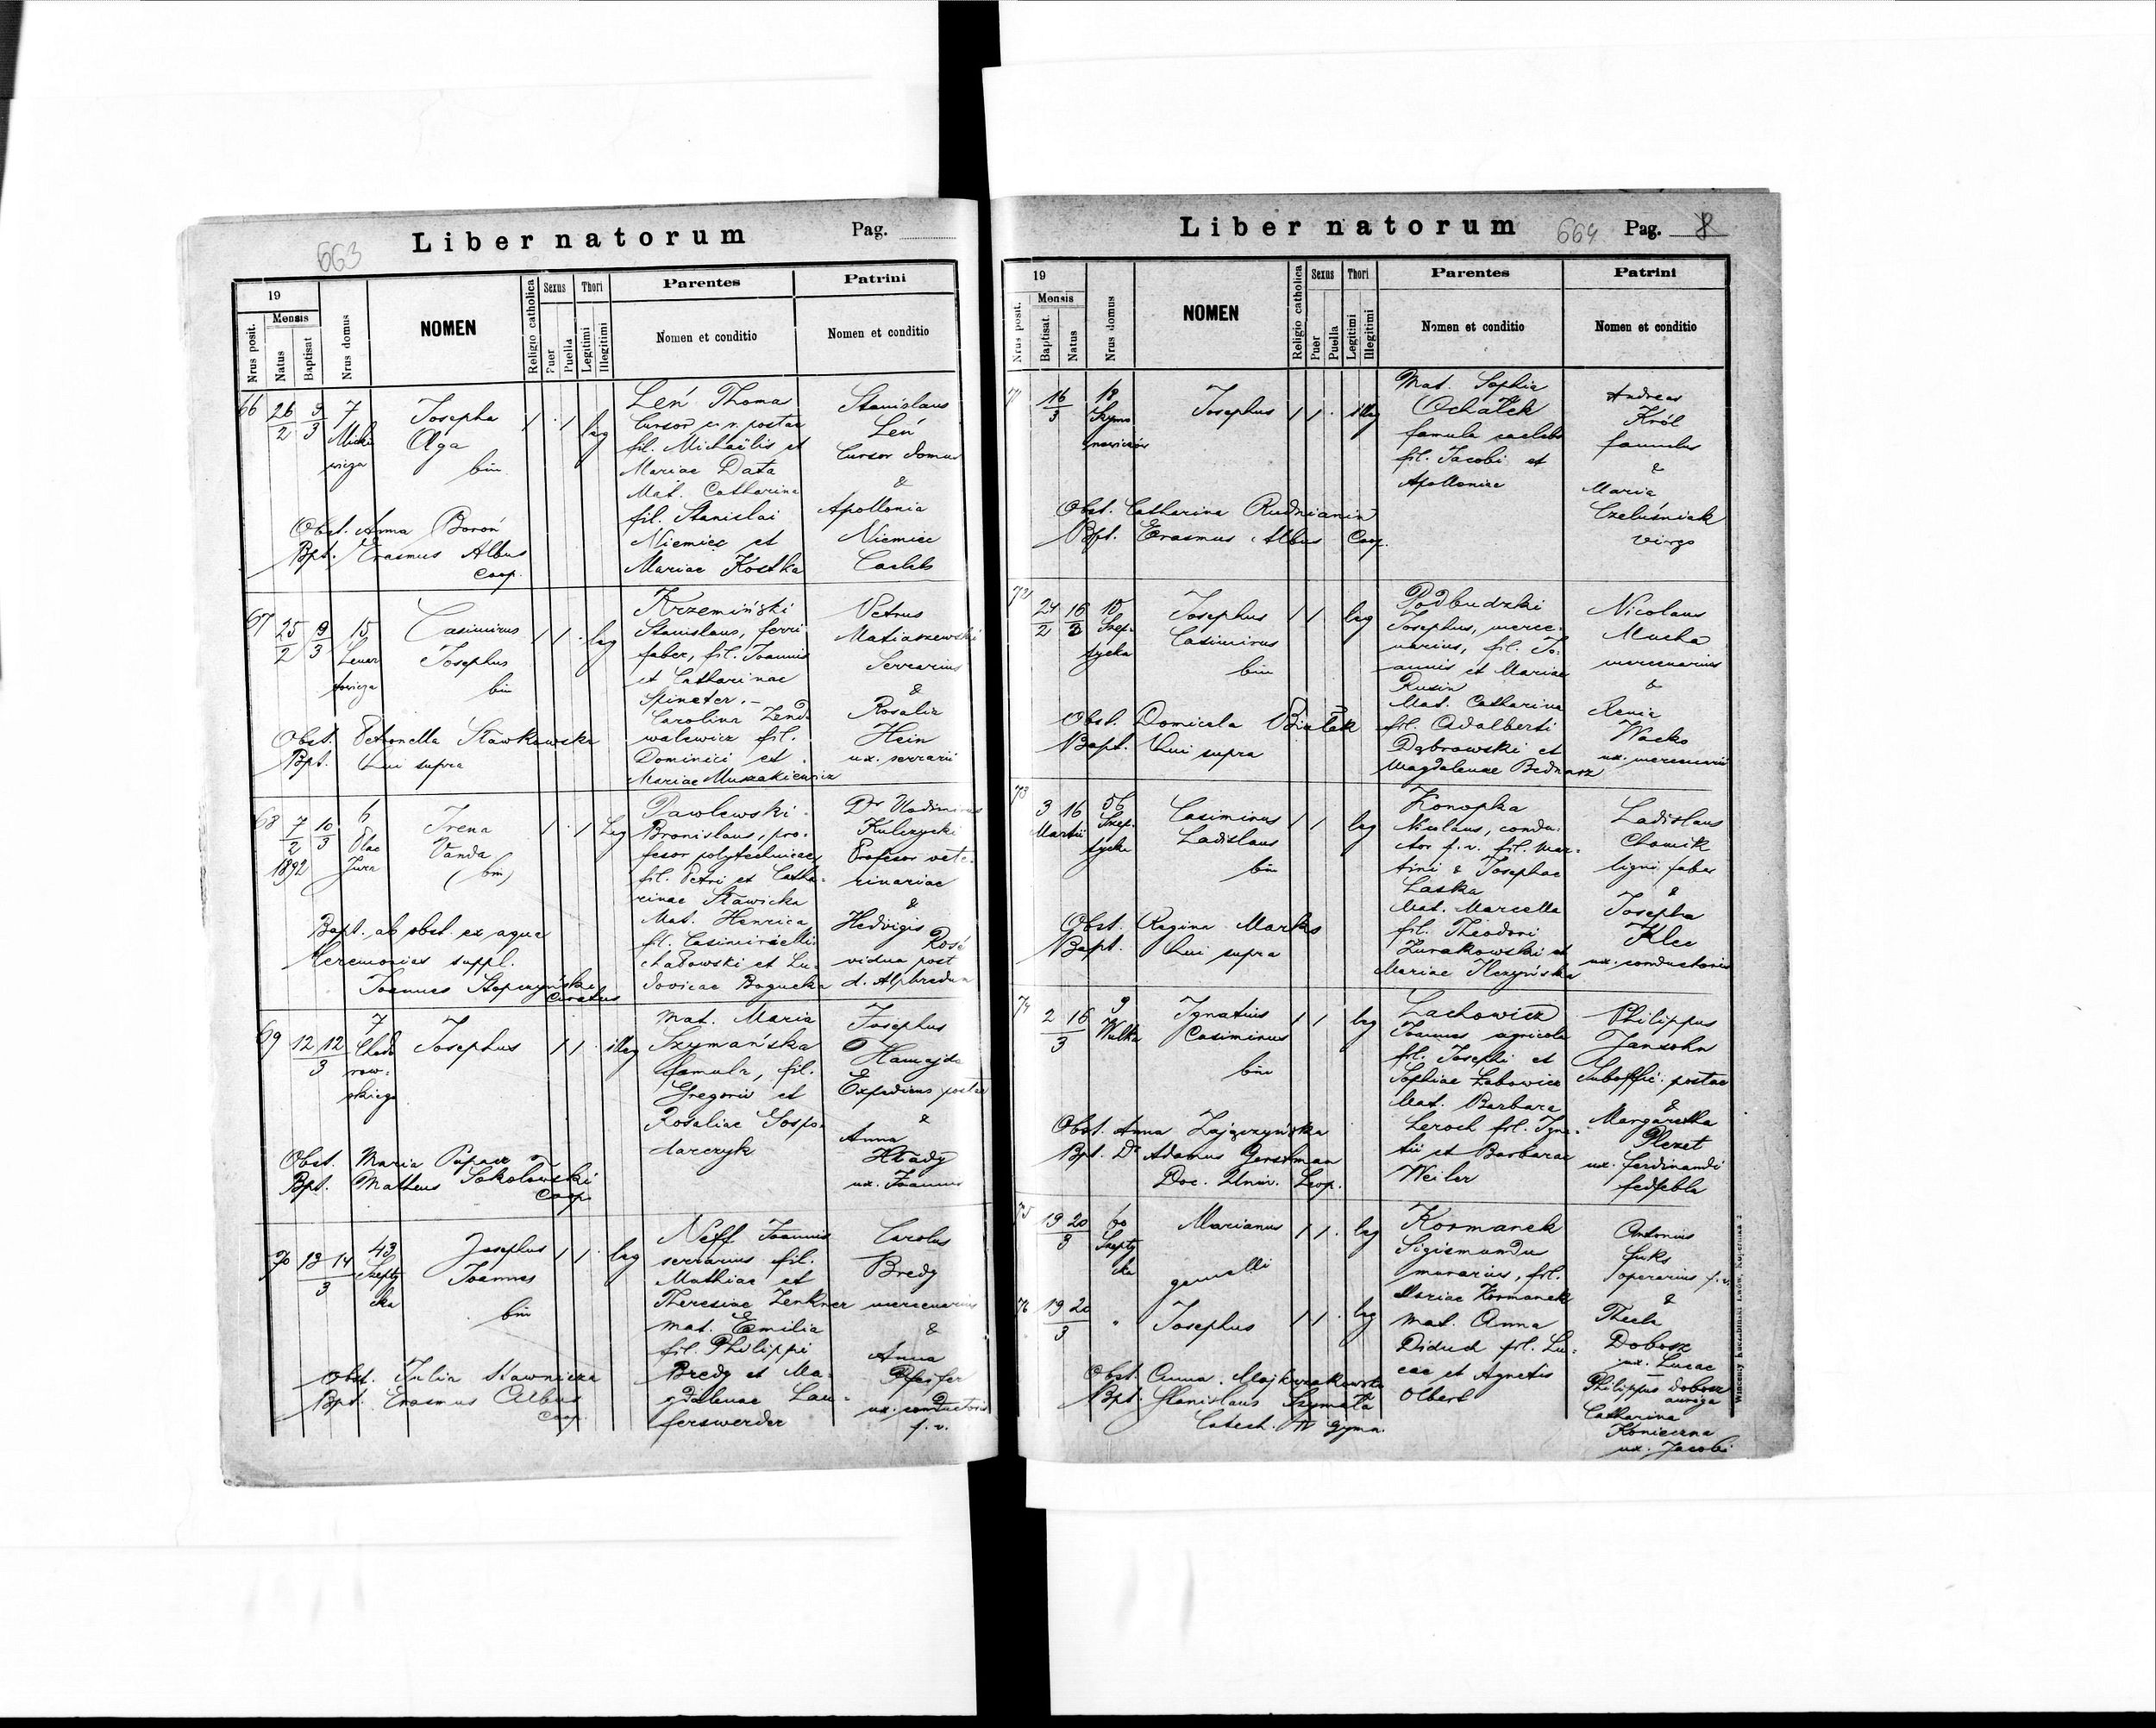 663
Liber natorum
Pag.
19
Mensis
Nrus posit.
Natus
Baptisat
Nrus domus
NOMEN
Religio catholica
Sexus
Puer
Puella
Thori
Legitimi
Illegitimi
Parentes
Nomen et conditio
Patrini
Nomen et conditio
66
26/2
3/3
7
Micki
wicza
Josepha
Olga
bin
leg
Leń Thoma
Cursor c. r. postae
fil. Michaëlis et
Mariae Data
Mat. Catharina
fil. Stanislai
Niemiec et
Mariae Kostka
Stanislaus
Leń
Cursor domus
&
Apollonia
Niemiec
Caelebs
Obst. Anna Boroń
Bpt. Erasmus Albus
Coop.
67
25/2
9/3
15
Lenar
towicza
Casimirus
Josephus
bin
leg
Krzemiński
Stanislaus, ferri
faber, fil. Joannis
et Catharinae
Spineter.
Carolina
walewicz fil.
Dominici et
Mariae Muszakiewicz
Petrus
Matiaszewski
Serrarius
&
Rosalia
Hein
ux. serrarii
Obst. Petronella Sławkowska
Bpt. Qui supra
68
7/2
10/3
1892
6
Plac
Jura
Irena
Vanda
(bin)
Leg
Pawlewski
Bronislaus, pro-
fesor polytechnicae
fil. Petri et Catha-
rinae Sławicka
Mat. Henrica
fil. Casimiri
chałowski et Lu-
dovicae Bogucka
Dr Vladimirus
Kulczycki
Profesor vete-
rinariae
&
Hedvigis
Rosé
vidua post
d. Alphredum
Bapt. ab obst. ex aqua
Ceremonias suppl.
Joannes Stopczyński
Curatus
69
12 12
3
7
Chodo
row-
skiego
Josephus
illeg
Mat. Maria
Szymańska
famula, fil.
Gregorii et
Rosaliae Gospo-
darczyk
Josephus
Hamajda
Expediens postae
&
Anna
Hłady
ux. Joannis
Obst. Maria
Bpt. Matheus Sokołowski
Coop.
70
13 14
3
43
Szepty
cka
Josephus
Joannes
bin
leg
Neff Joannis
serrarius fil.
Mathiae et
Theresiae Zenkner
mat. Emilia
fil. Philippi
Bredy et Ma-
gdalenae Lau-
ferswerder
Carolus
Bredy
mercenarius
&
Anna
Pfeifer
ux. conductoris
f. v.
Obst. Julia Sławnicka
Bpt. Erasmus Albus
Coop.
Liber natorum
664
Pag. 8
19
Mensis
Nrus posit.
Baptisat.
Natus
Nrus domus
NOMEN
Religio catholica
Sexus
Puer
Puella
Thori
Legitimi
Illegitimi
Parentes
Nomen et conditio
Patrini
Nomen et conditio
71
16/3
18
Szymo
nowiczów
Josephus
illeg
Mat. Sophia
Ochałek
famula caelebs
fil. Jacobi et
Apolloniae
Andreas
Król
famulus
&
Maria
Czeluśniak
virgo
Obst. Catharina Rudnianin
Bpt. Erasmus Albus Coop.
72
24/2
16/3
15
Szep-
tycka
Josephus
Casimirus
bin
leg
Podbudzki
Josephus, merce-
narius, fil. Jo-
annis et Mariae
Rusin
Mat. Catharina
fil. Adalberti
Dąbrowski et
Magdalenae Bednarz
Nicolaus
Mucha
mercenarius
&
Xenia
Wacko
ux. mercenarii
Obst. Domicela Białek
Bapt. Qui supra
73
3 16
Martii
56
Szep-
tycka
Casimirus
Ladislaus
bin
leg
Konopka
Nicolaus, condu-
ctor f. v. fil. Mar-
tini & Josephae
Laska
Mat. Marcella
fil. Theodori
Żurakowski et
Mariae Ilczyńska
Ladislaus
Chomik
ligni faber
&
Josepha
Klee
ux. conductoris
Obst. Regina Marks
Bapt. Qui supra
74
2 16
3
9
Wulka
Ignatius
Casimirus
bin
leg
Lachowicz
Joannes agricola
fil. Josephi et
Sophiae Łabowicz
Mat. Barbara
Leroch fil. Igna-
tii et Barbarae
Weiler
Philippus
Jansohn
Suboffic. postae
&
Margaretha
Plezet
ux. Ferdinandi
fedfebla
Obst. Anna Zajączyńska
Bpt. Dr Adamus Gerstman
Doc. Univ. Leop.
75
19 20
3
60
Szepty
cka
Marianus
gemelli
leg
Kormanek
Sigismundus
murarius, fil.
Mariae Kormanek
Mat. Anna
Diduch fil. Lu-
cae et Agnetis
Olbert
Antonius
Fuks
operarius f. v.
&
Thecla
Dobosz
ux. Lucae
Philippus Dobosz
auriga
Catharina
Konieczna
ux. Jacobi
76
19 20
3
"
Josephus
leg
Obst. Anna Majkrzakowska
Bpt. Stanislaus Szymała
Catech. IV Gymn.